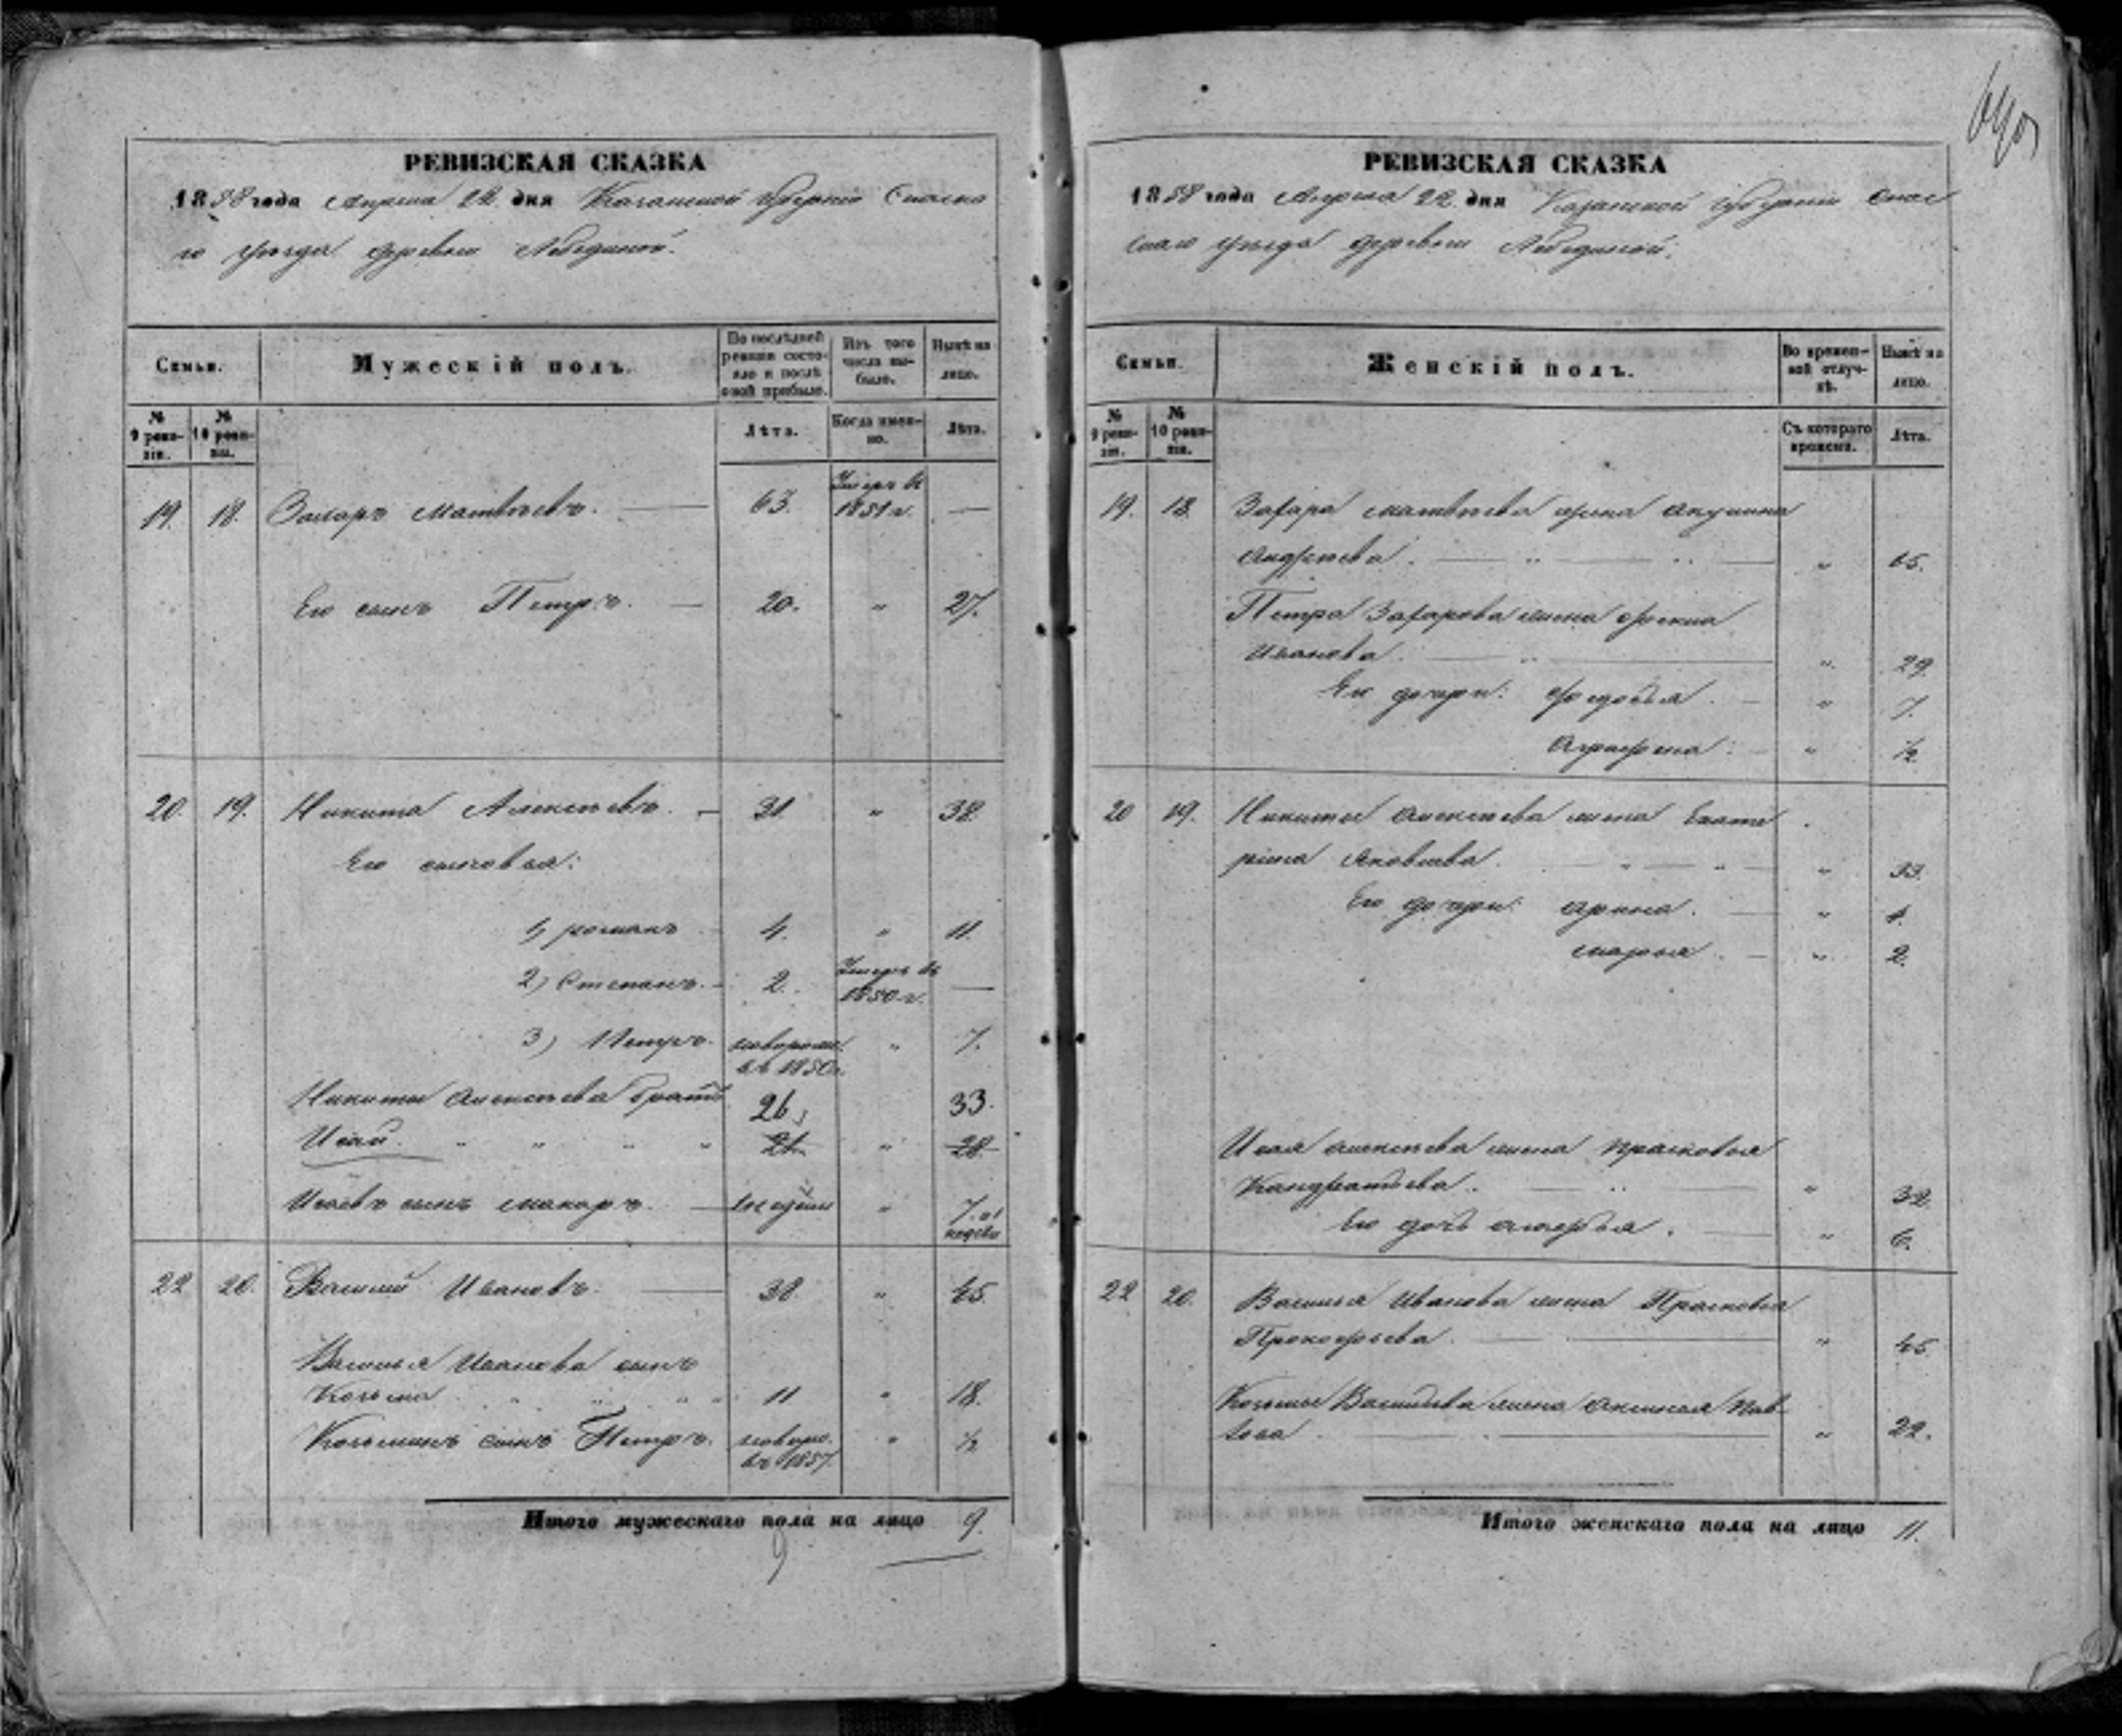 РЕВИЗСКАЯ СКАЗКА
1858 года Апреля 22 дня Казанской Губернии Спаско
го уѣзда деревни Лебединой.
Семьи.
Мужескій полъ.
По послѣдней ревизіи состояло и послѣ оной прибыло.
Изъ того числа выбыло.
Нынѣ на лицо.
№ 9 ревизіи.
№ 10 ревизіи.
Лѣта.
Когда именно.
Лѣта.
19. 18. Захаръ Матвѣевъ. — 63. Умеръ въ 1851 г. —
Его сынъ Петръ. — 20. " 27.
20. 19. Никита Алексѣевъ. — 31 " 38.
Его сыновья:
1, романъ 4. " 11.
2) Степанъ. - 2. Умеръ въ 1850 г. —
3) Петръ. новорож. въ 1850 г. " 7.
Никиты Алексѣева братъ 26, 33.
Исай. " " " " 21 " 28
Исаевъ сынъ макаръ. — " 7.
22 20. Василій Ивановъ. — 38 " 45
Василья Иванова сынъ
Козьма " " " " 11 " 18.
Козьминъ сынъ Петръ. новоро. въ 1857. " ½
Итого мужескаго пола на лицо 9.
9
РЕВИЗСКАЯ СКАЗКА
1858 года Апреля 22 дня Казанской Губерніи Спас
скаго уѣзда деревни Лебединой.
Семьи.
Женскій полъ.
Во временной отлучкѣ.
Нынѣ на лицо.
№ 9 ревизіи.
№ 10 ревизіи.
Съ котораго времени.
Лѣта.
19. 18. Захара матвѣева жена Акулина
Андрѣева. — " — " — "
Петра Захарова жена
Иванова. — " — " 29.
Его дочери: Федосья. — " 7.
Аграфена: — " ½
20 19. Никиты Алексѣева жена Екате
рина Яковлева. — " — " — " 33.
Его дочери: Арина. — "
марья. — " 2.
Исая алексѣева жена прасковья
Кандратьева. — " — " 32
Его дочь — " 6.
22 20. Василья Иванова жена Прасковья
Прокофьева. — " 45
Козьмы Васильева жена Аксинья Пав
лова — " 22.
Итого женскаго пола на лицо 11.